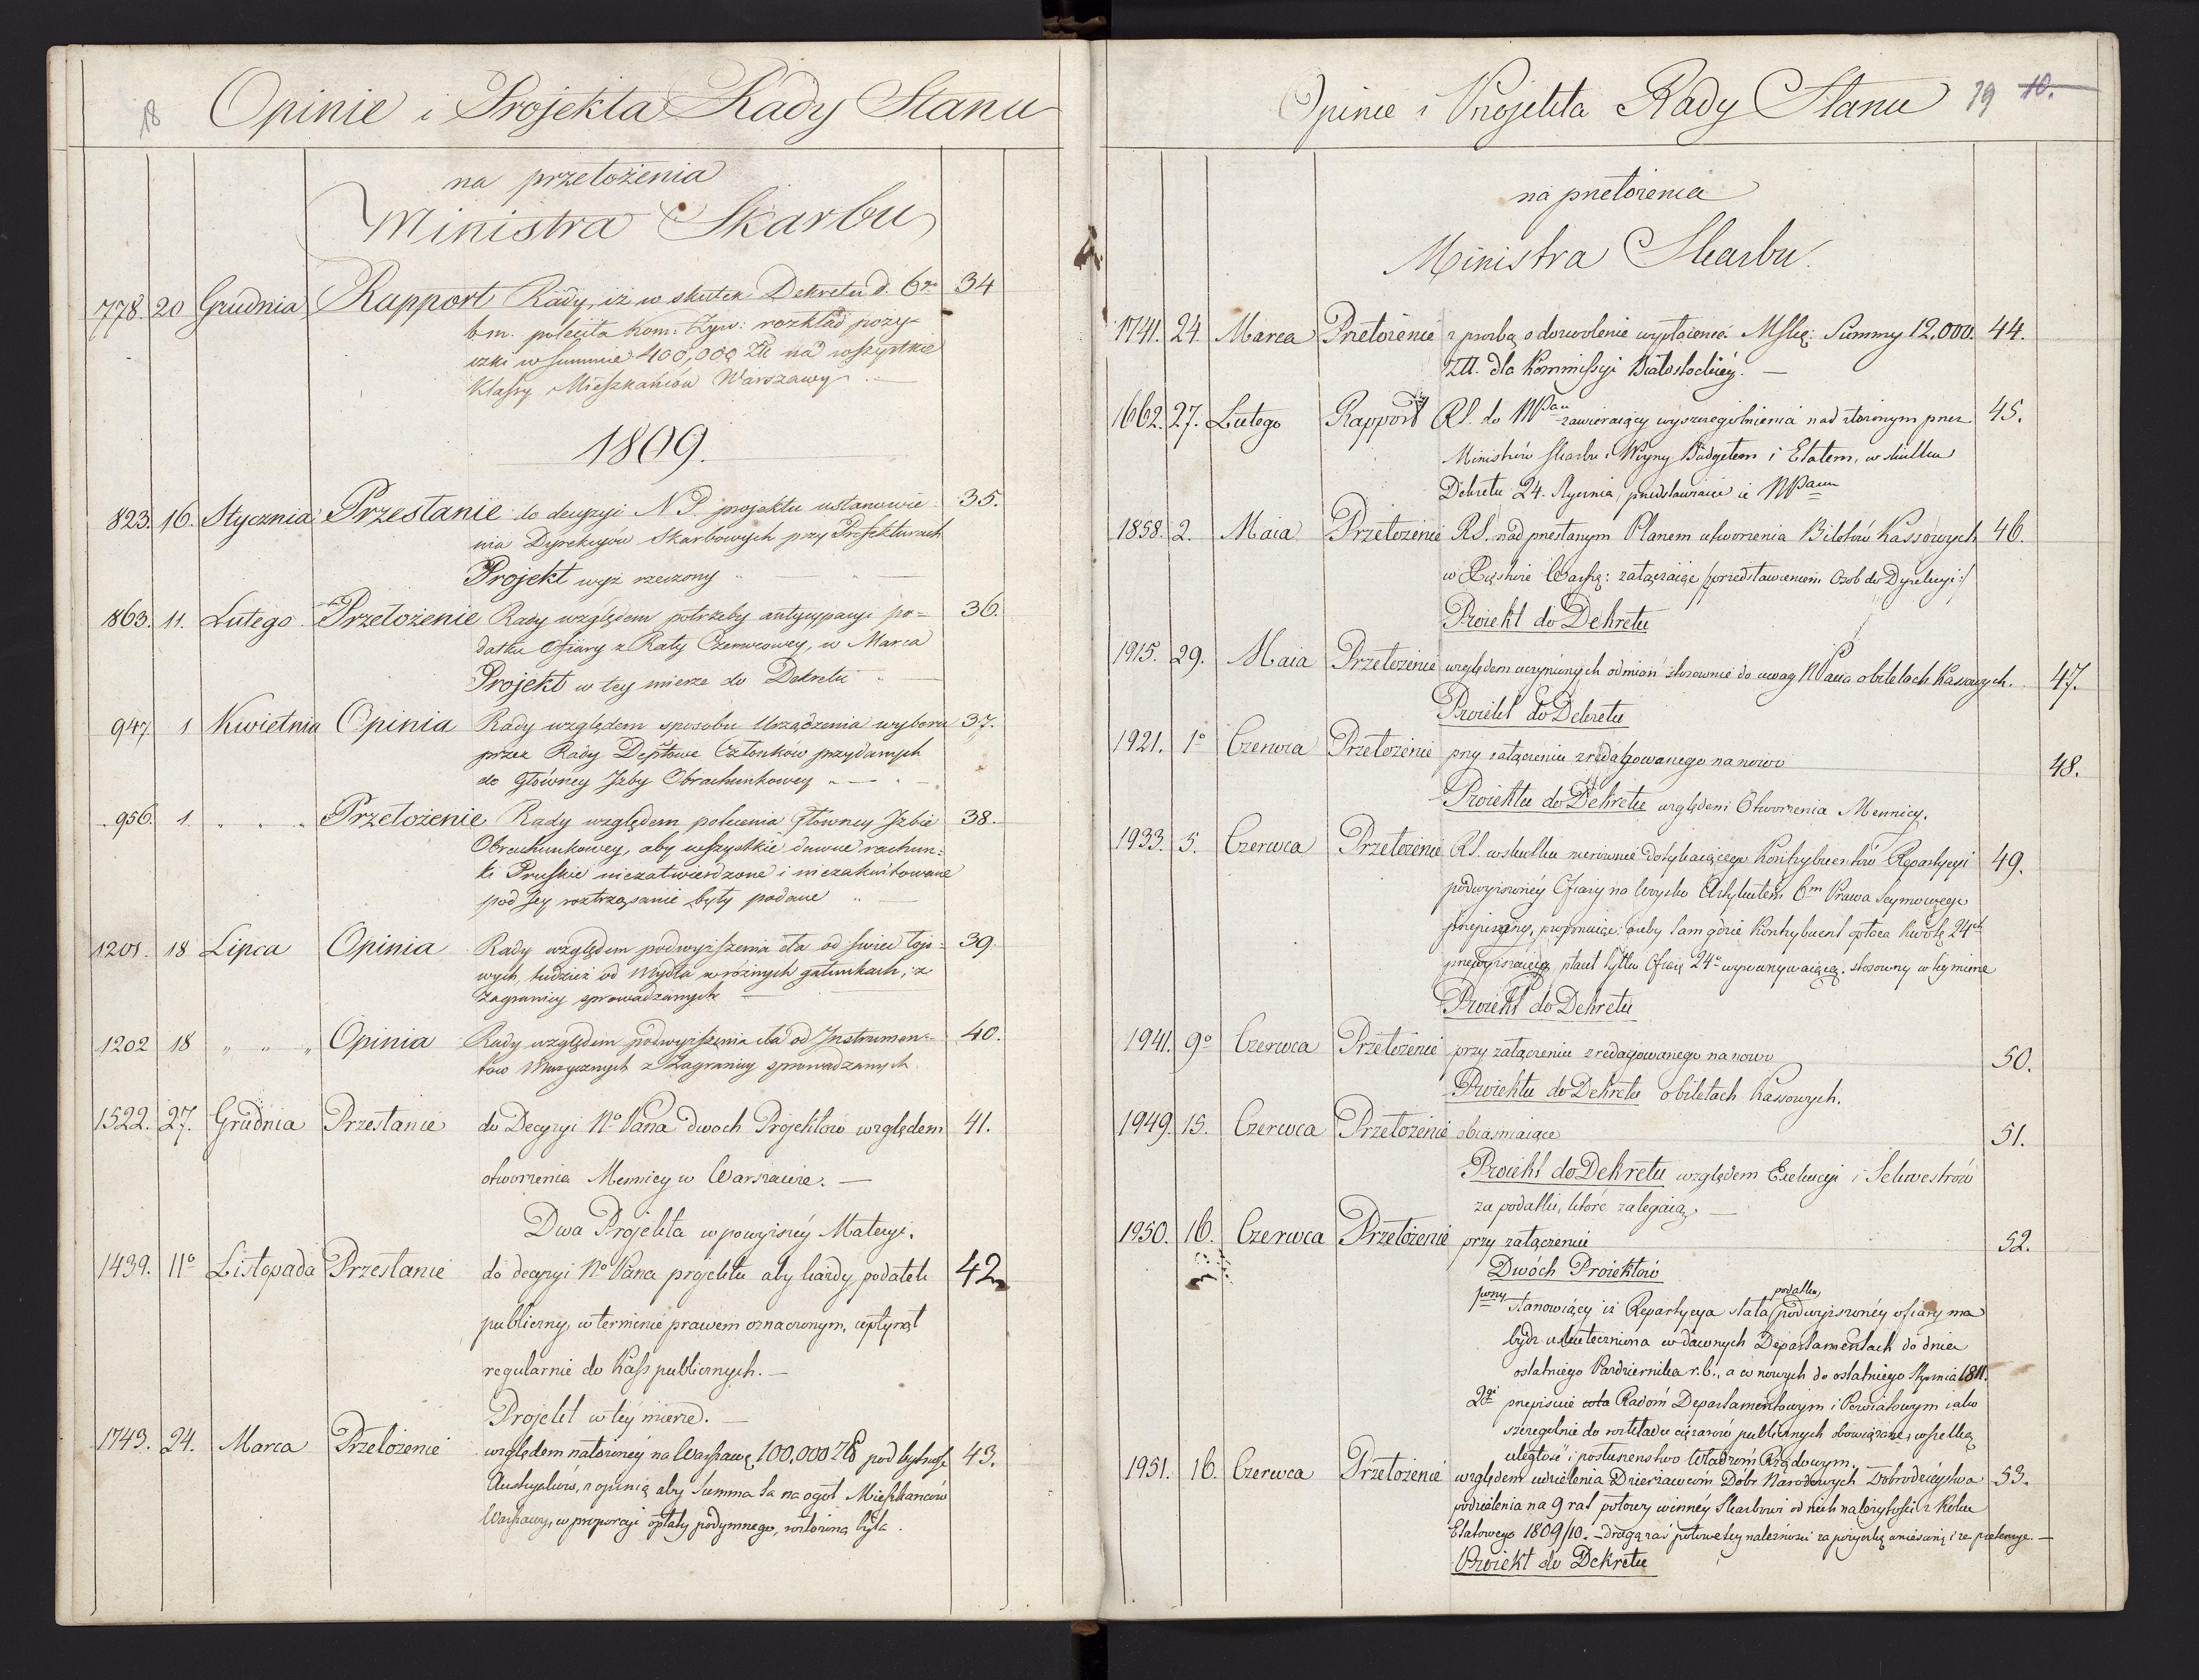 18 Opinie i Projekta Rady Stanu
na przełożenia
Ministra Skarbu
778. 20 Grudnia Rapport Rady, iż w skutek Dekretu d. 6go 34
b.m. poleciła Kom: Żyw: rozkład pozy-
czki w summie 400,000 Zł na wszystkie
Klassy Mieszkańców Warszawy. —
1809.
823. 16. Stycznia Przesłanie do decyzyi N. P. projektu ustanowie 35.
nia Dyrekcyów Skarbowych przy Prefekturach
Projekt wyż rzeczony
863. 11. Lutego Przełożenie Rady względem potrzeby antycypacyi po= 36.
datku Ofiary z Raty Czerwcowey, w Marcu
Projekt w tey mierze do Dekretu
947. 1 Kwietnia Opinia Rady względem sposobu Urządzenia wyboru 37.
przez Rady Deptowe Członków przydanych
do Główney Izby Obrachunkowey
956. 1 " " " Przełożenie Rady względem polecenia Główney Izbie 38.
Obrachunkowey, aby wszystkie dawne rachun=
ki Pruskie niezatwierdzone i niezakwitowane
pod Jey roztrząsanie były podane
1201. 18 Lipca Opinia Rady względem podwyższenia cła od świec łojo- 39.
wych, tudzież od Mydła w różnych gatunkach, z
zagranicy sprowadzanych
1202 18 " " " Opinia Rady względem podwyższenia cła od Instrumen= 40.
tów Muzycznych z Zagranicy sprowadzanych
1522. 27. Grudnia Przesłanie do Decyzyi No Pana dwoch Projektów względem 41.
otworzenia Mennicy w Warszawie. —
Dwa Projekta w powyższéy Materyi.
1439. 11o Listopada Przesłanie do decyzyi No Pana projektu aby każdy podatek 42
publiczny, w terminie prawem oznaczonym, wpłynął
regularnie do Kass publicznych. —
Projekt w téy mierze. —
1743. 24. Marca Przełożenie względem nałożonéy na Warszawę 100,000 Zł pod bytność 43.
Austryaków, z opinią aby Summa ta na ogół Mieszkańców
Warszawy, w proporcyi opłaty podymnego, rozłożoną była.
Opinie i Projekta Rady Stanu 19 10.
na przełożenia
Ministra Skarbu.
1741. 24. Marca Przełożenie z prośbą o dozwolenie wypłacenia Summy 12,000. 44.
Zll. dla Kommissyi Białostockiéy. —
1662. 27. Lutego Rapport RS. do NPana zawieraiący wyszczególnienia nad złożonym przez 45.
Ministrów Skarbu i Woyny Budgetem i Etatem, w skutku
Dekretu 24. Stycznia, przedstawiaiąc ie NPanu
1858. 2. Maia Przełożenie RS. nad przesłanym Planem utworzenia Biletów Kassowych 46.
w Xięstwie Warsz: załączaiąc /przedstawieniem Osob do Dyrekcyi:/
Proiekt do Dekretu
1915. 29. Maia Przełożenie względem uczynionych odmian stosownie do uwag NPana o biletach Kassowych. 47.
Proiekt do Dekretu
1921. 1o Czerwca Przełożenie przy załączeniu zredagowanego na nowo 48.
Proiektu do Dekretu względem Otworzenia Mennicy.
1933. 5. Czerwca Przełożenie RS. w skutku nierówności dotykaiącego Kontrybuentów Repartycyi 49.
podwyższonéy Ofiary na Woysko Artykułem 6m Prawa Seymowego
przepisany, proponuiąc: ażeby tam gdzie Kontrybuent opłaca kwotę 24tą
przewyższaiącą, płacił tylko Ofiarę 24o wyrównywaiącą. stosowny w téy mierze
Proiekt do Dekretu
1941. 9o Czerwca Przełożenie przy załączeniu zredagowanego na nowo 50.
Proiektu do Dekretu o biletach Kassowych.
1949. 15. Czerwca Przełożenie obiaśniaiące 51.
Proiekt do Dekretu względem Exekucyi i Sekwestrów
za podatki, które zalegaią. —
1950. 16. Czerwca Przełożenie przy załączeniu 52.
Dwóch Proiektów
1wszy stanowiący iż Repartycya stała podatku podwyższonéy ofiary ma
bydź uskuteczniona w dawnych Departamentach do dnia
ostatniego Pazdziernika r.b., a w nowych do ostatniego Stycznia 1811.
2gi przepisuie Radom Departamentowym i Powiatowym iako
szczególnie do rozkładu ciężarów publicznych obowiązane, wszelką
uległość i posłuszeństwo Władzom Rządowym.
1951. 16. Czerwca Przełożenie względem udzielenia Dzierżawcom Dobr Narodowych Dobrodzieystwa 53.
podzielenia na 9 rat połowy winnéy Skarbowi od nich należytości z Roku
Etatowego 1809/10. — drugą zaś połowę tey należności za pożyczkę
Proiekt do Dekretu